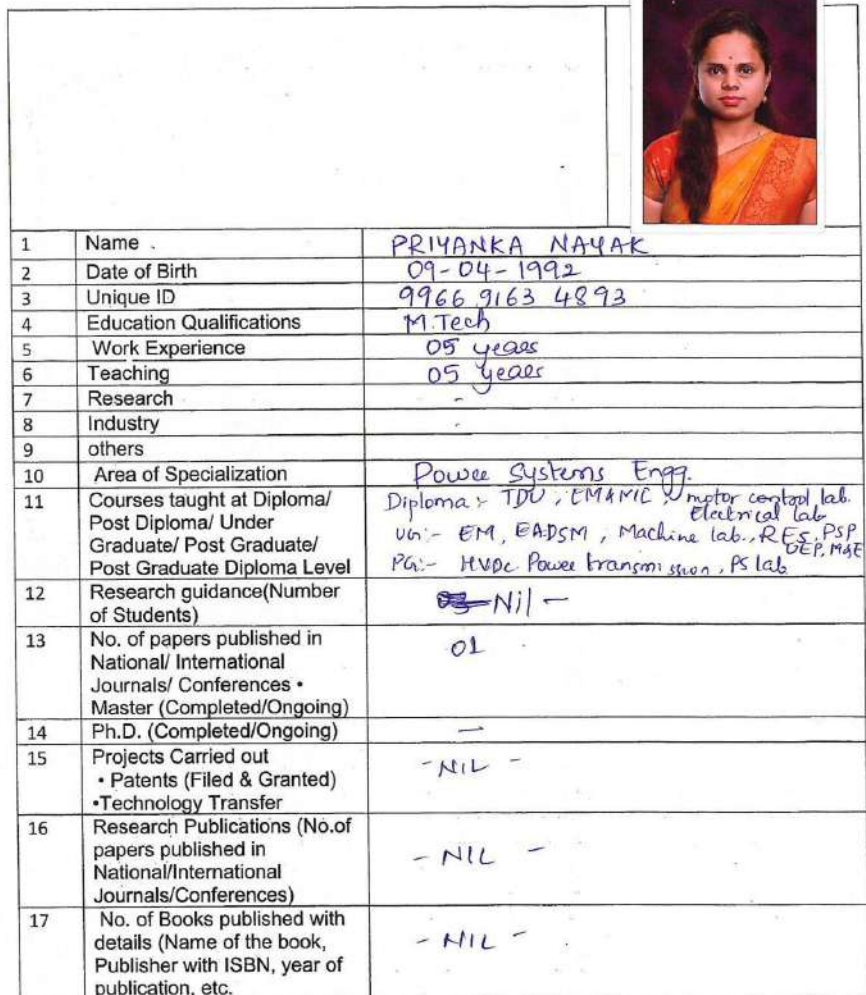 1 Name . PRIYANKA NAYAK
2 Date of Birth 09-04-1992
3 Unique ID 9966 9163 4893
4 Education Qualifications M.Tech
5 Work Experience 05 years
6 Teaching 05 years
7 Research -
8 Industry -
9 others
10 Area of Specialization Power Systems Engg.
11 Courses taught at Diploma/ Diploma:- TDU, EMAMIC, motor control lab.
Post Diploma/ Under Electrical lab
Graduate/ Post Graduate/ UG:- EM, EADSM, Machine lab., RES, PSP
OEP, M&E
Post Graduate Diploma Level PG:- HVDC Power transmission, PS lab
12 Research guidance(Number -Nil-
of Students)
13 No. of papers published in 01
National/ International
Journals/ Conferences •
Master (Completed/Ongoing)
14 Ph.D. (Completed/Ongoing) —
15 Projects Carried out -NIL-
• Patents (Filed & Granted)
•Technology Transfer
16 Research Publications (No.of
papers published in - NIL -
National/International
Journals/Conferences)
17 No. of Books published with
details (Name of the book, - NIL -
Publisher with ISBN, year of
publication, etc.